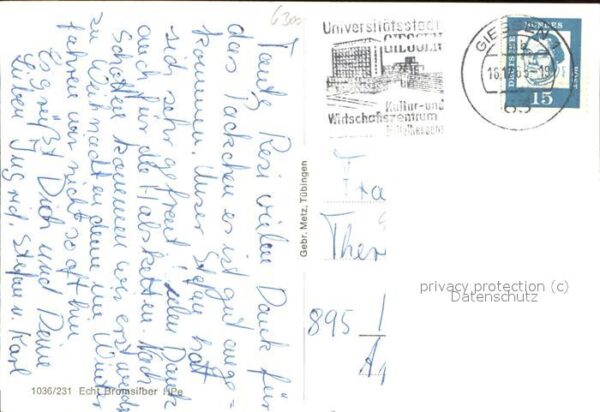 6300
Tante Resi vielen Dank für
das Päckchen es ist gut ange-
kommen. Unser Stefan hat
sich sehr gefreut vielen Dank
auch für die Halsketten. Nach
Schotten kommen wir erst wieder
zu Weihnachten denn im Winter
fahren wir nicht so oft hin
Es grüßt Dich und Deine
Lieben Ingrid, Stefan u. Karl
Universitätsstadt
GIESSEN
Kultur- und
Wirtschaftszentrum
Mittelhessens
GIE
DEUTSCHE
BUNDES
POST
15
Gebr. Metz, Tübingen
Fra
Ther
895
privacy protection (c)
Datenschutz
1036/231 Echt Bromsilber HPe